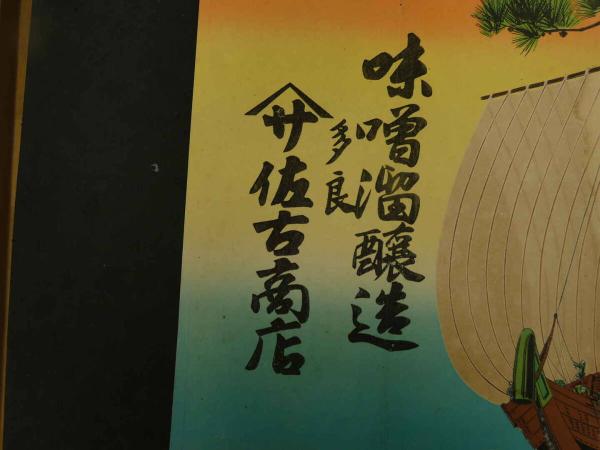 味噌溜醸造
多良
サ佐古商店